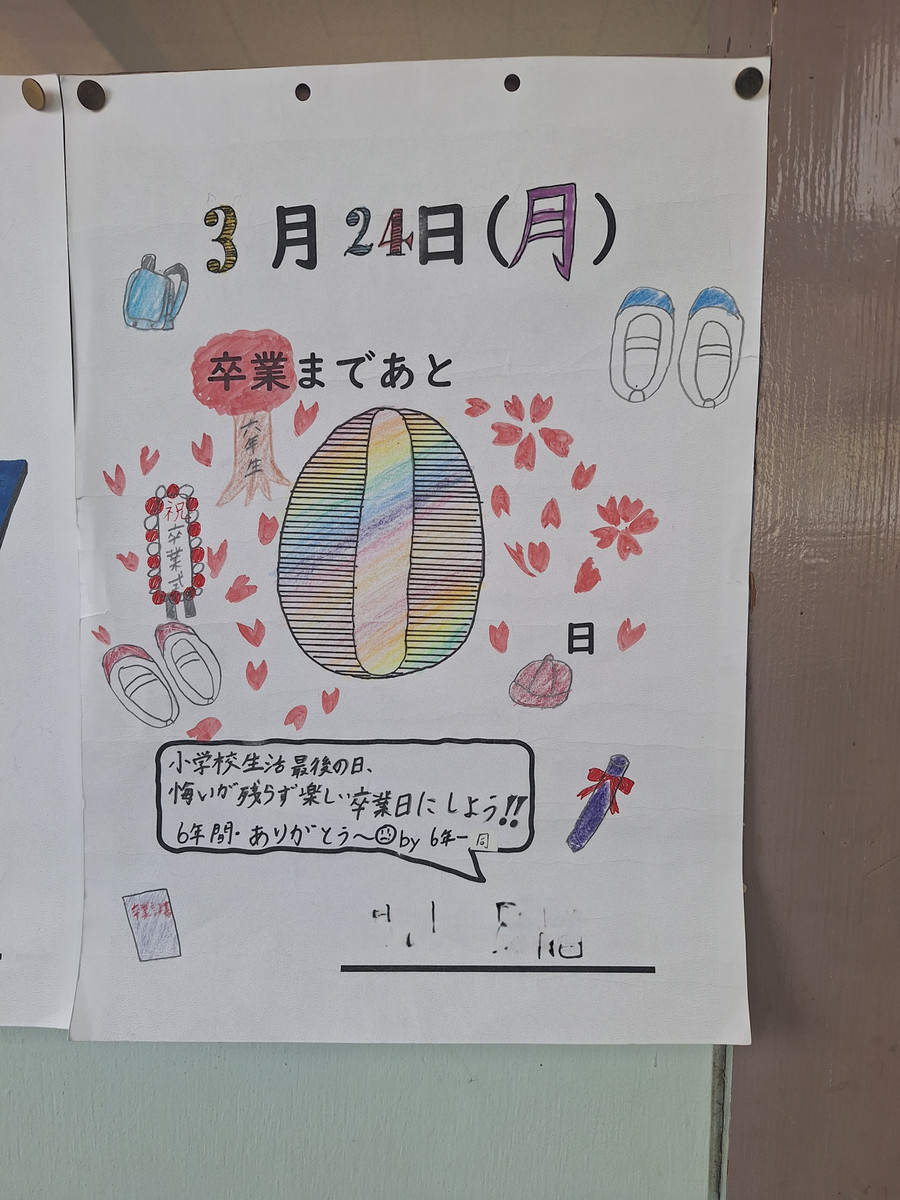 3月24日(月)
卒業まであと
六年生
祝
卒業式
0
日
小学校生活最後の日、
悔いが残らず楽しい卒業日にしよう!!
6年間・ありがとう〜 by 6年一同